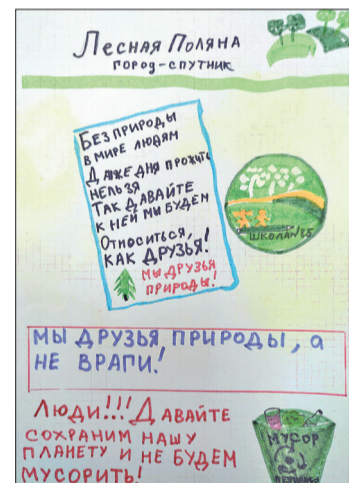 Лесная Поляна
город-спутник
Без природы
в мире людям
Даже дня прожить
нельзя
Так давайте
к ней мы будем
Относиться,
как друзья!
Мы друзья
природы!
школа №85
Мы друзья природы, а
не враги!
Люди!!! Давайте
сохраним нашу
планету и не будем
мусорить!
Мусор